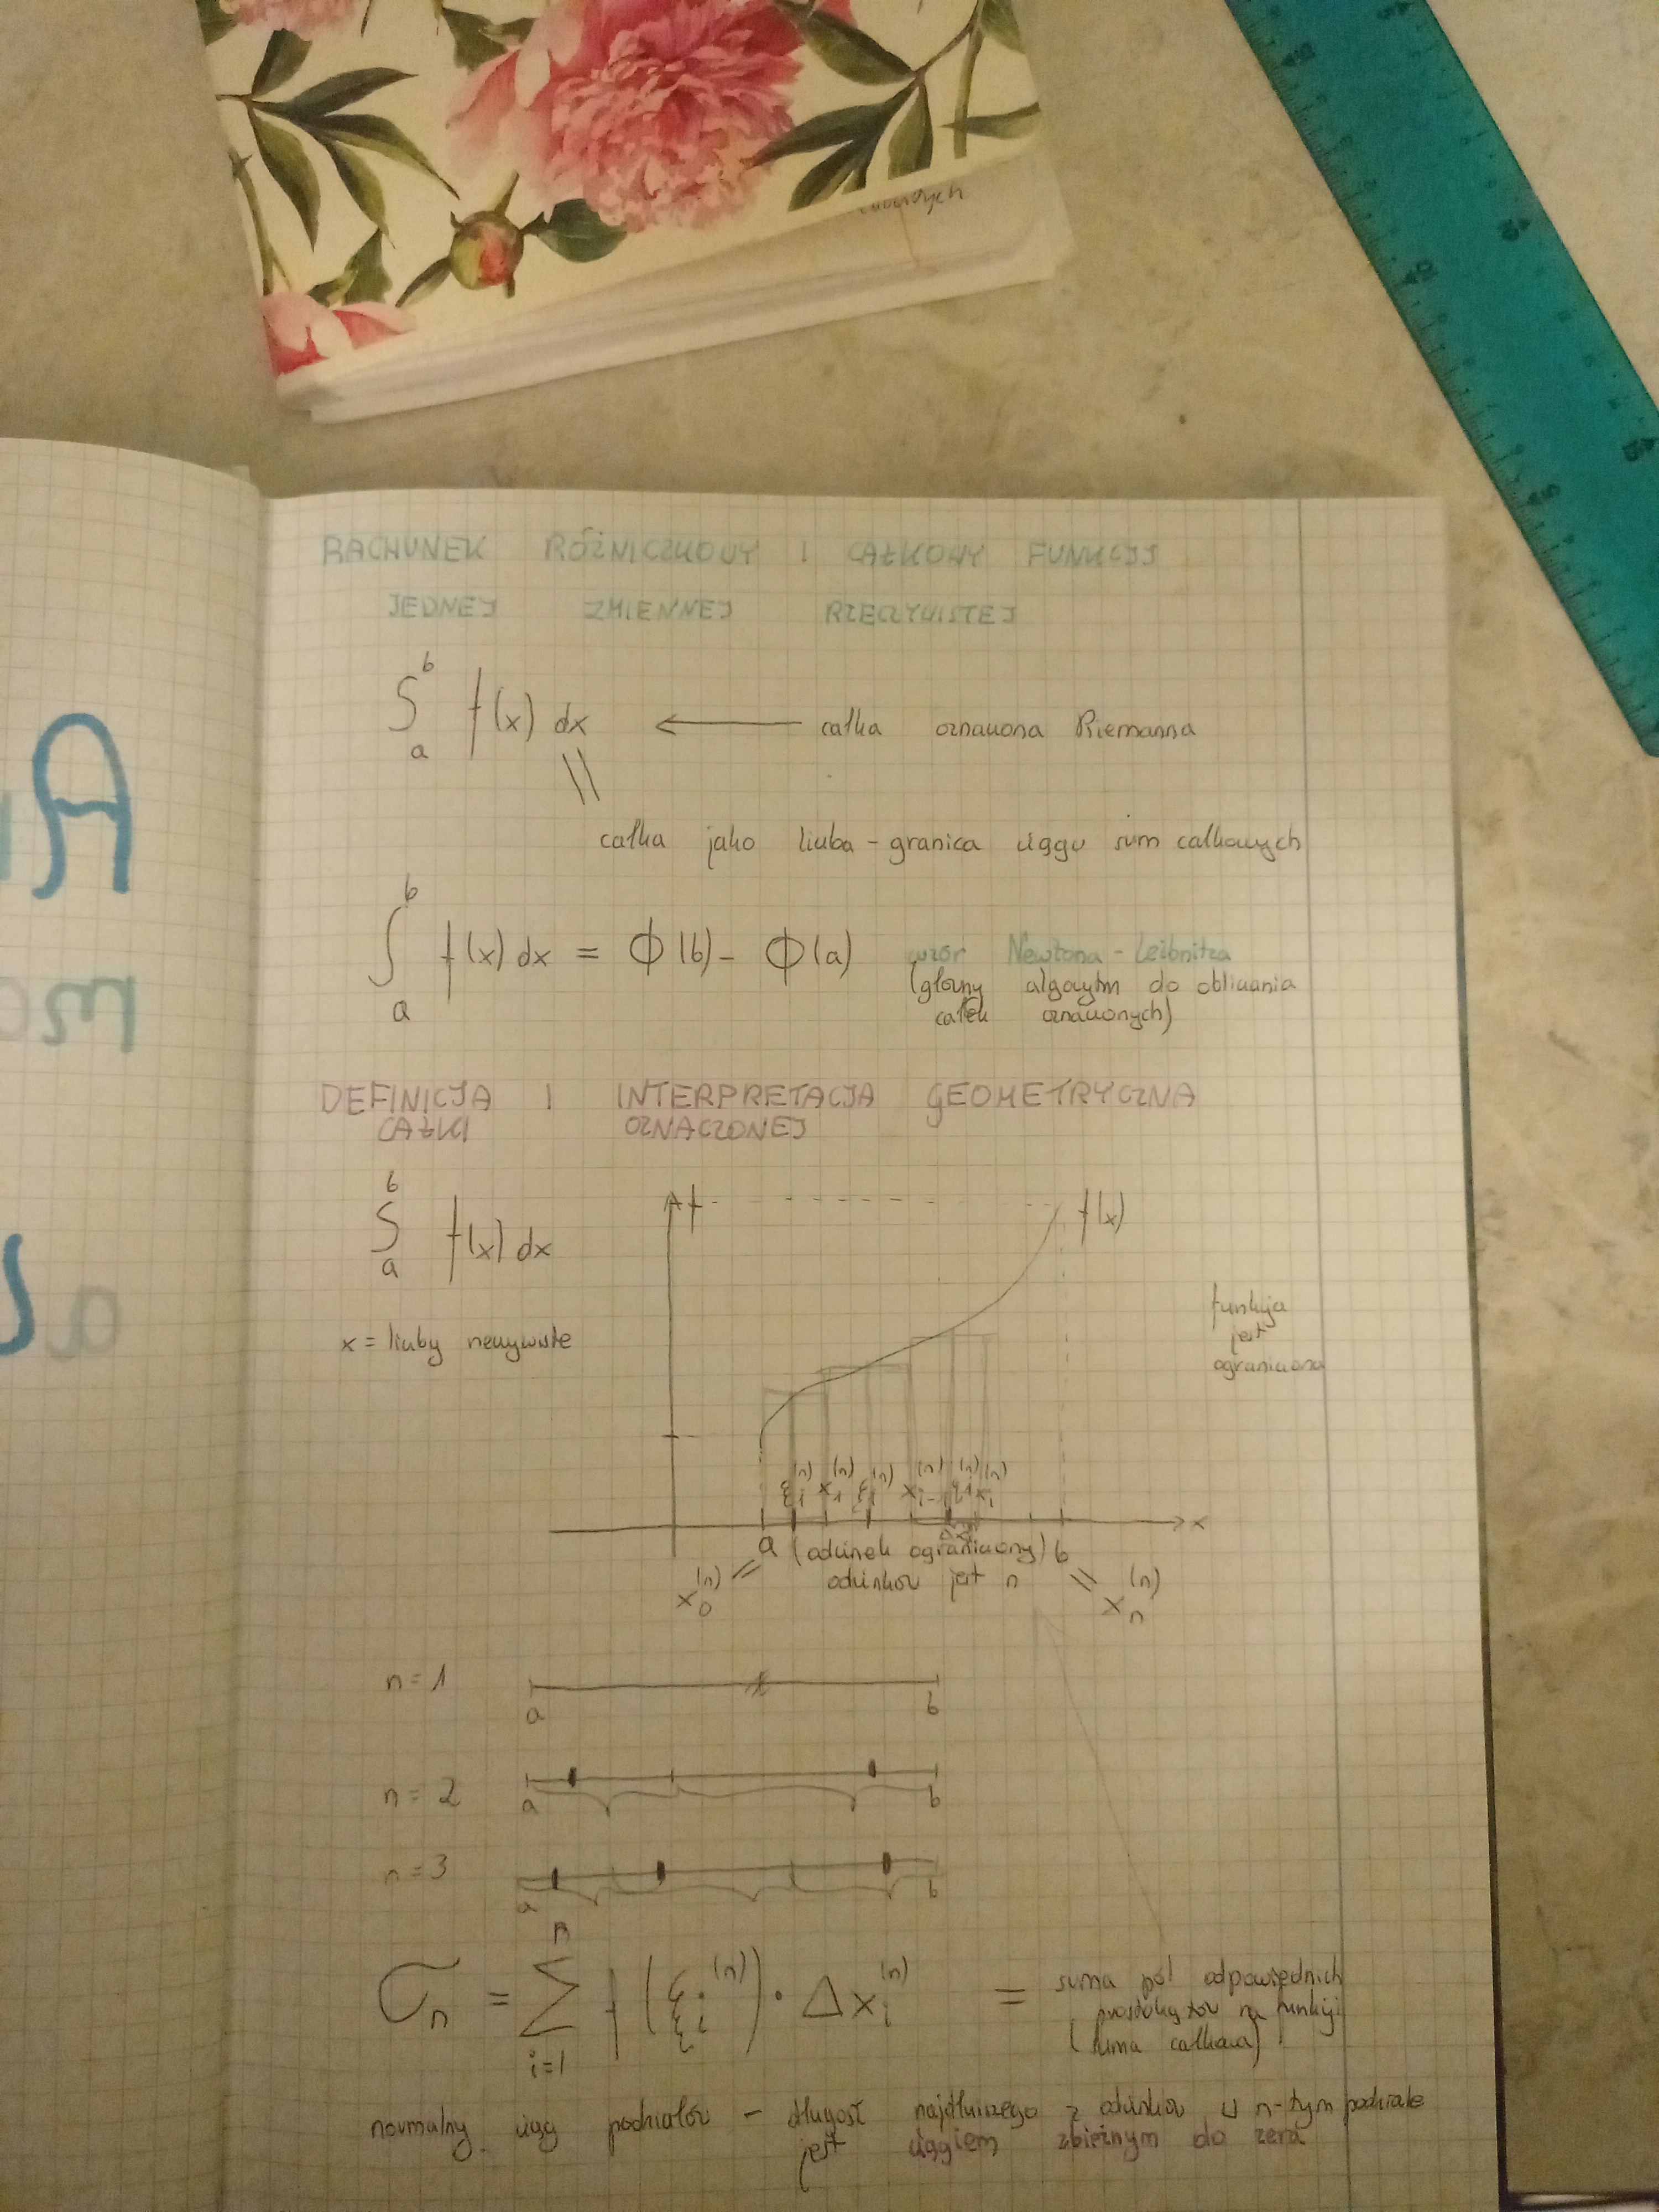 RACHUNEK RÓŻNICZKOWY I CAŁKOWY FUNKCJI
JEDNEJ ZMIENNEJ RZECZYWISTEJ
∫_a^b f(x) dx ← całka oznaczona Riemanna
||
całka jako liczba - granica ciągu sum całkowych
∫_a^b f(x) dx = Φ(b) - Φ(a) wzór Newtona - Leibnitza
(główny algorytm do obliczania
całek oznaczonych)
DEFINICJA I INTERPRETACJA GEOMETRYCZNA
CAŁKI OZNACZONEJ
∫_a^b f(x) dx
f
f(x)
x = liczby rzeczywiste
funkcja
jest
ograniczona
ξ_i^(n) x_1^(n) ξ_i^(n) x_{i-1}^(n) ξ_i^(n) x_i^(n)
x
a (odcinek ograniczony) b
x_0^(n) = odcinków jest n = x_n^(n)
n = 1 a b
n = 2 a b
n = 3 a b
σ_n = ∑_{i=1}^n f(ξ_i^(n)) · Δx_i^(n) = suma pól odpowiednich
prostokątów na funkcji
(suma całkowa)
normalny ciąg podziałów - długość najdłuższego z odcinków w n-tym podziale
jest ciągiem zbieżnym do zera